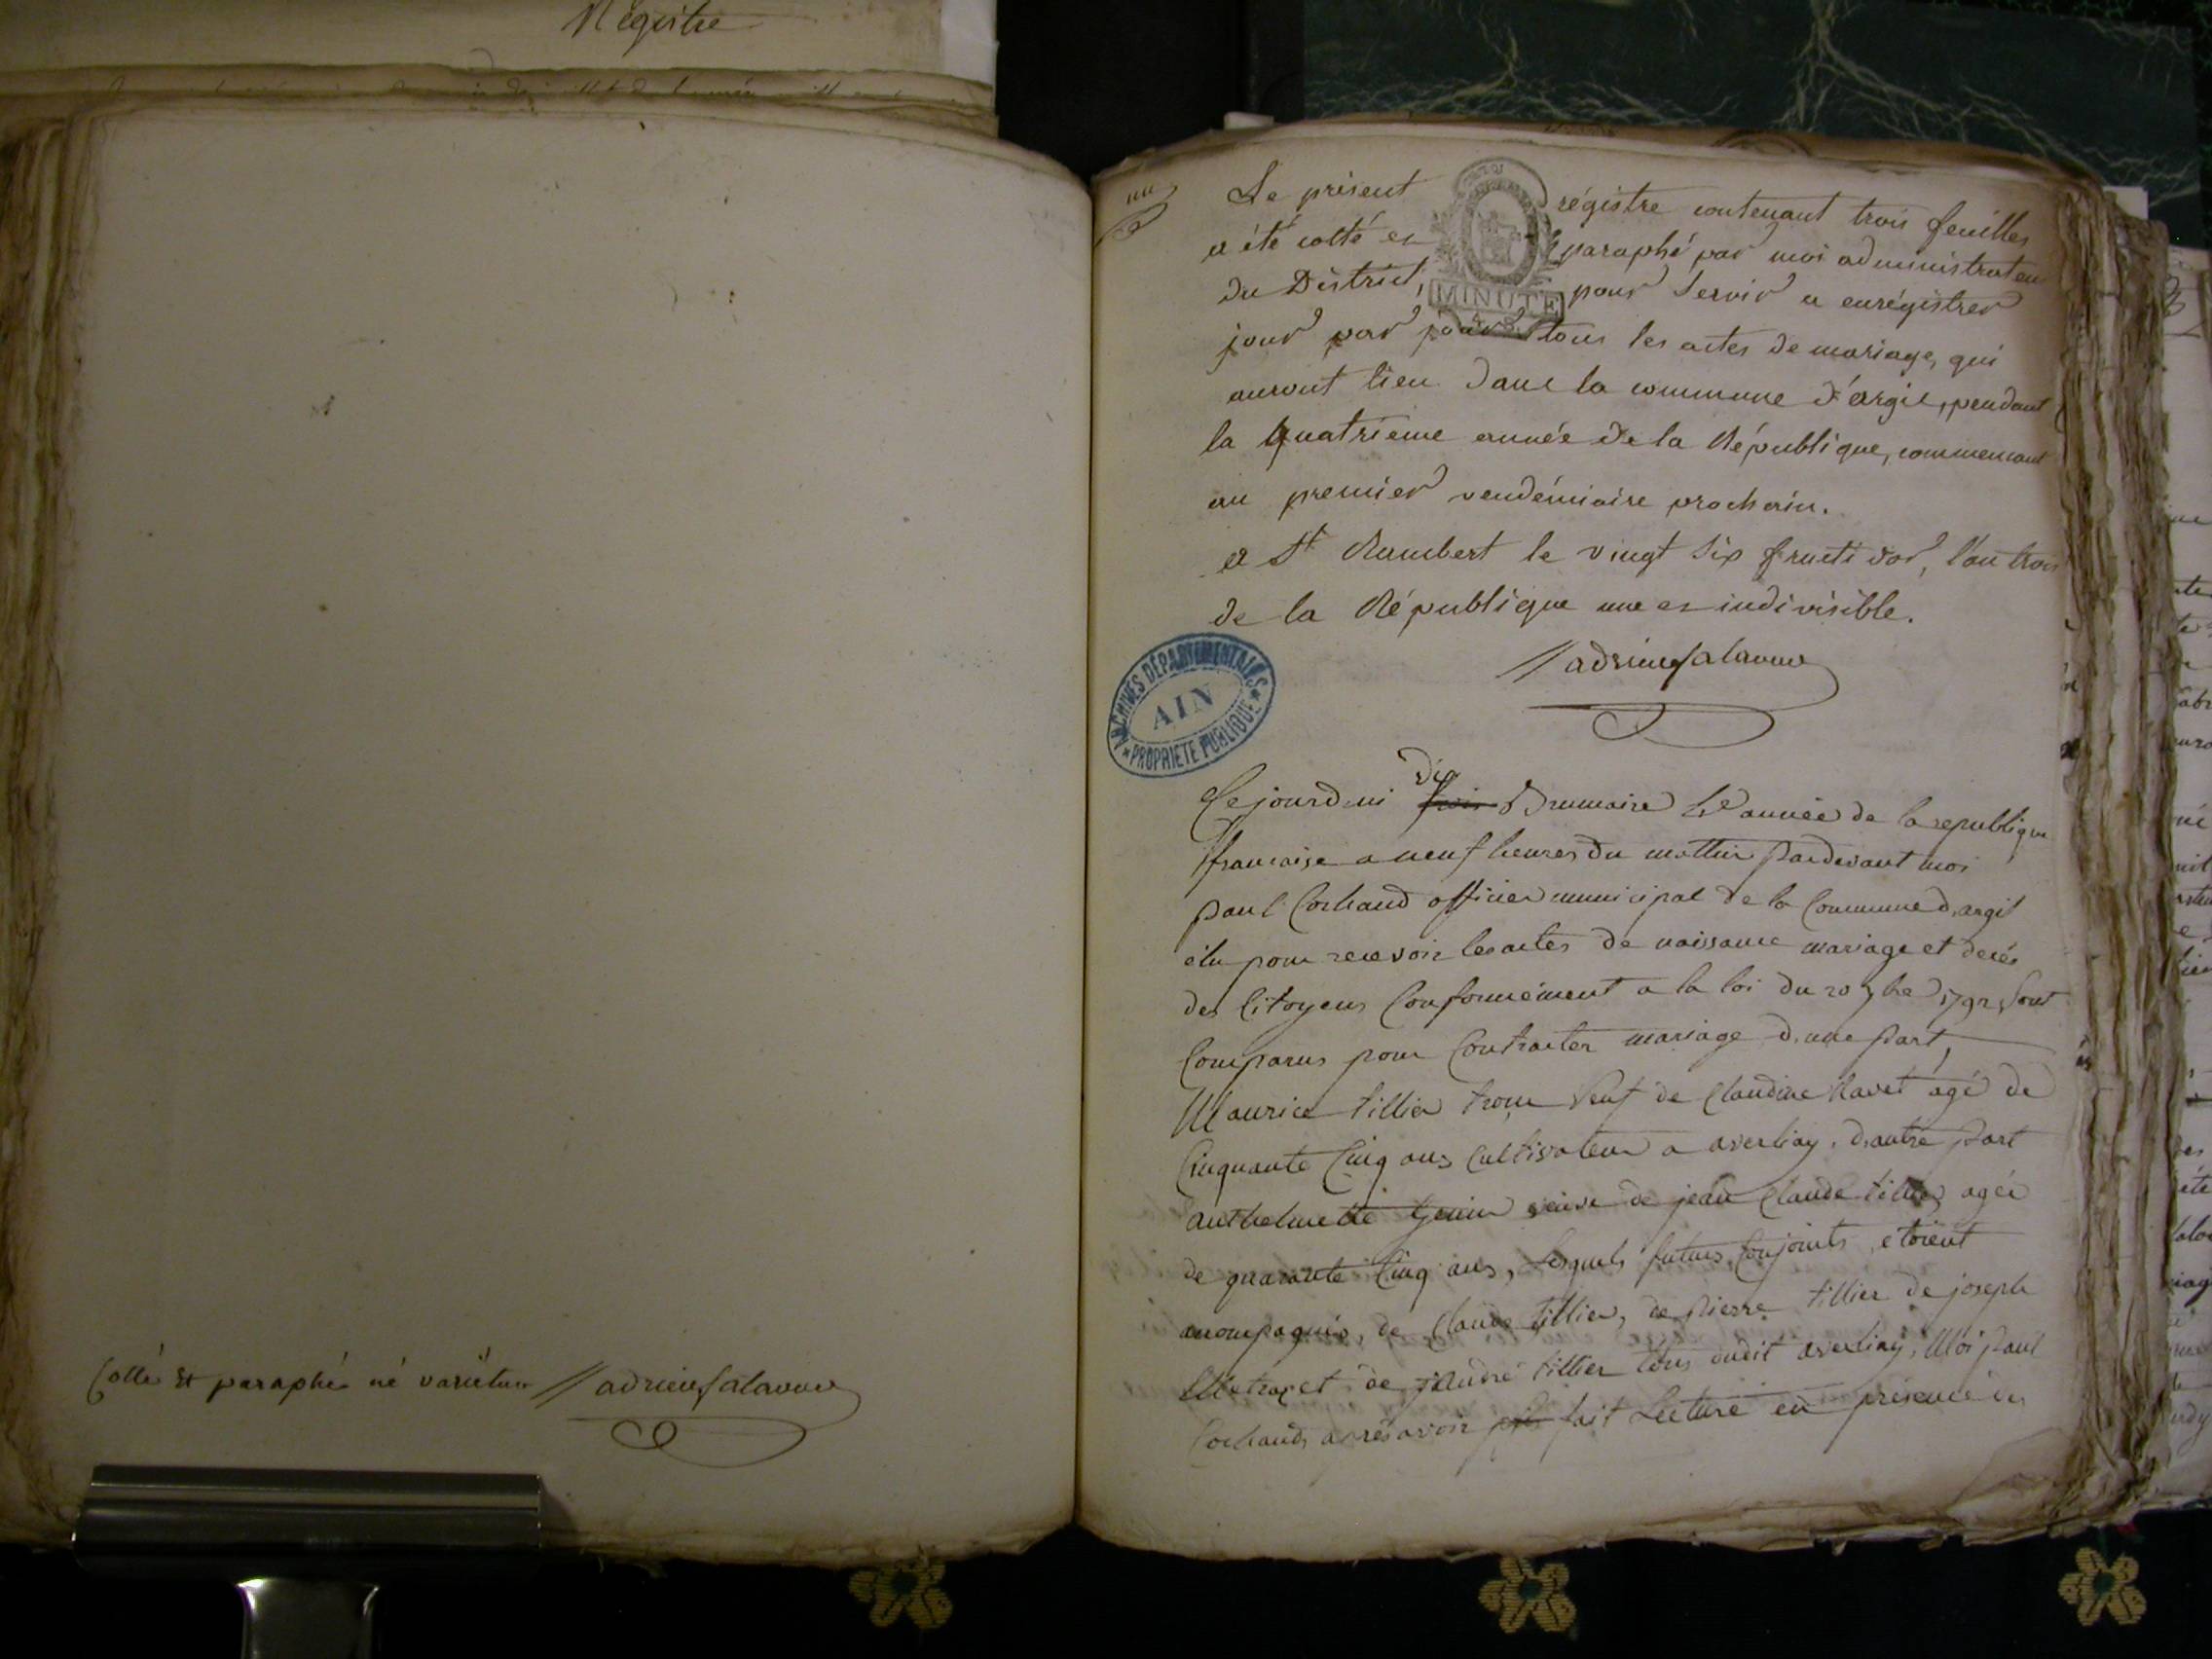 Régistre
Cotté Et paraphé né variétur adrien Salavuee
Le présent régistre contenant trois feuilles
a été cotté et paraphé par moi administrateur
du District, pour servir a enrégistrer
MINUTE
jour par jour tous les actes de mariage, qui
auront lieu dans la commune d'argis, pendant
la quatrieme année de la République, commencant
au premier vendémiaire prochain.
a St Rambert le vingt six fructidor, l'an trois
de la République une et indivisible.
ARCHIVES DÉPARTEMENTALES
AIN
PROPRIÉTÉ PUBLIQUE
Cejourdhui trois dix Brumaire 4e année de la republique
francaise a neuf heures du mattin pardevant moi
paul Cochaud officier municipal de la Commune d'argil
élu pour recevoir les actes de naissance mariage et décés
des Citoyens Conformément a la loi du 20 7bre 1792, sont
Comparus pour Contracter mariage d'une part,
Maurice tillier veuf de Claudine Ravet agé de
Cinquante Cinq ans Cultivateur a averliay, d'autre part
anthelmette Genin veuve de jean Claude tillier agée
de quarante Cinq ans, lesquels futurs Conjoints etoient
accompagnés, de Claude tillier, de pierre tillier de joseph
et de andré tillier tous dudit averliay, Moi paul
Cochaud, aprés avoir fait Lecture en présence des